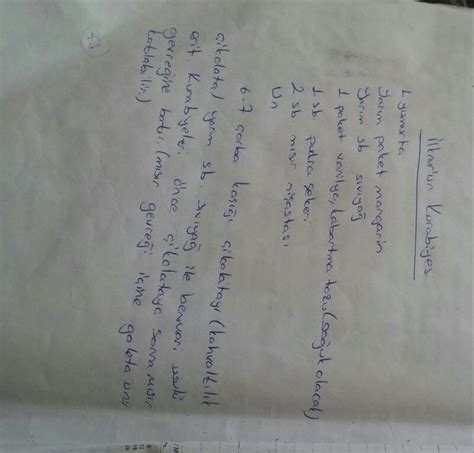 İlknur'un Kurabiyesi
1 yumurta
Yarım paket margarin
Yarım sb sıvıyağ
1 paket vanilya, kabartma tozu (soğuk olacak)
1 sb pudra şekeri
2 sb mısır nişastası
Un
6-7 çorba kaşığı çikolatayı (kahvaltılık
çikolata) yarım sb. sıvıyağ ile benmari usulü
erit. Kurabiyeleri önce çikolataya sonra mısır
gevreğine batır. (mısır gevreği içine galeta unu
katılabilir)